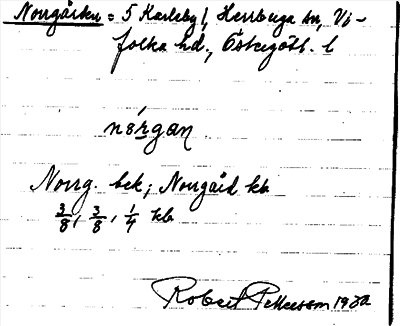 Norrgården = 5 Karleby 1, Herrberga sn, Vi-
folka hd., Östergötl. l
nórgan
Norrg. bek; Norrgård kb
3/8, 3/8, 1/4 kb
Robert Pettersson 1932